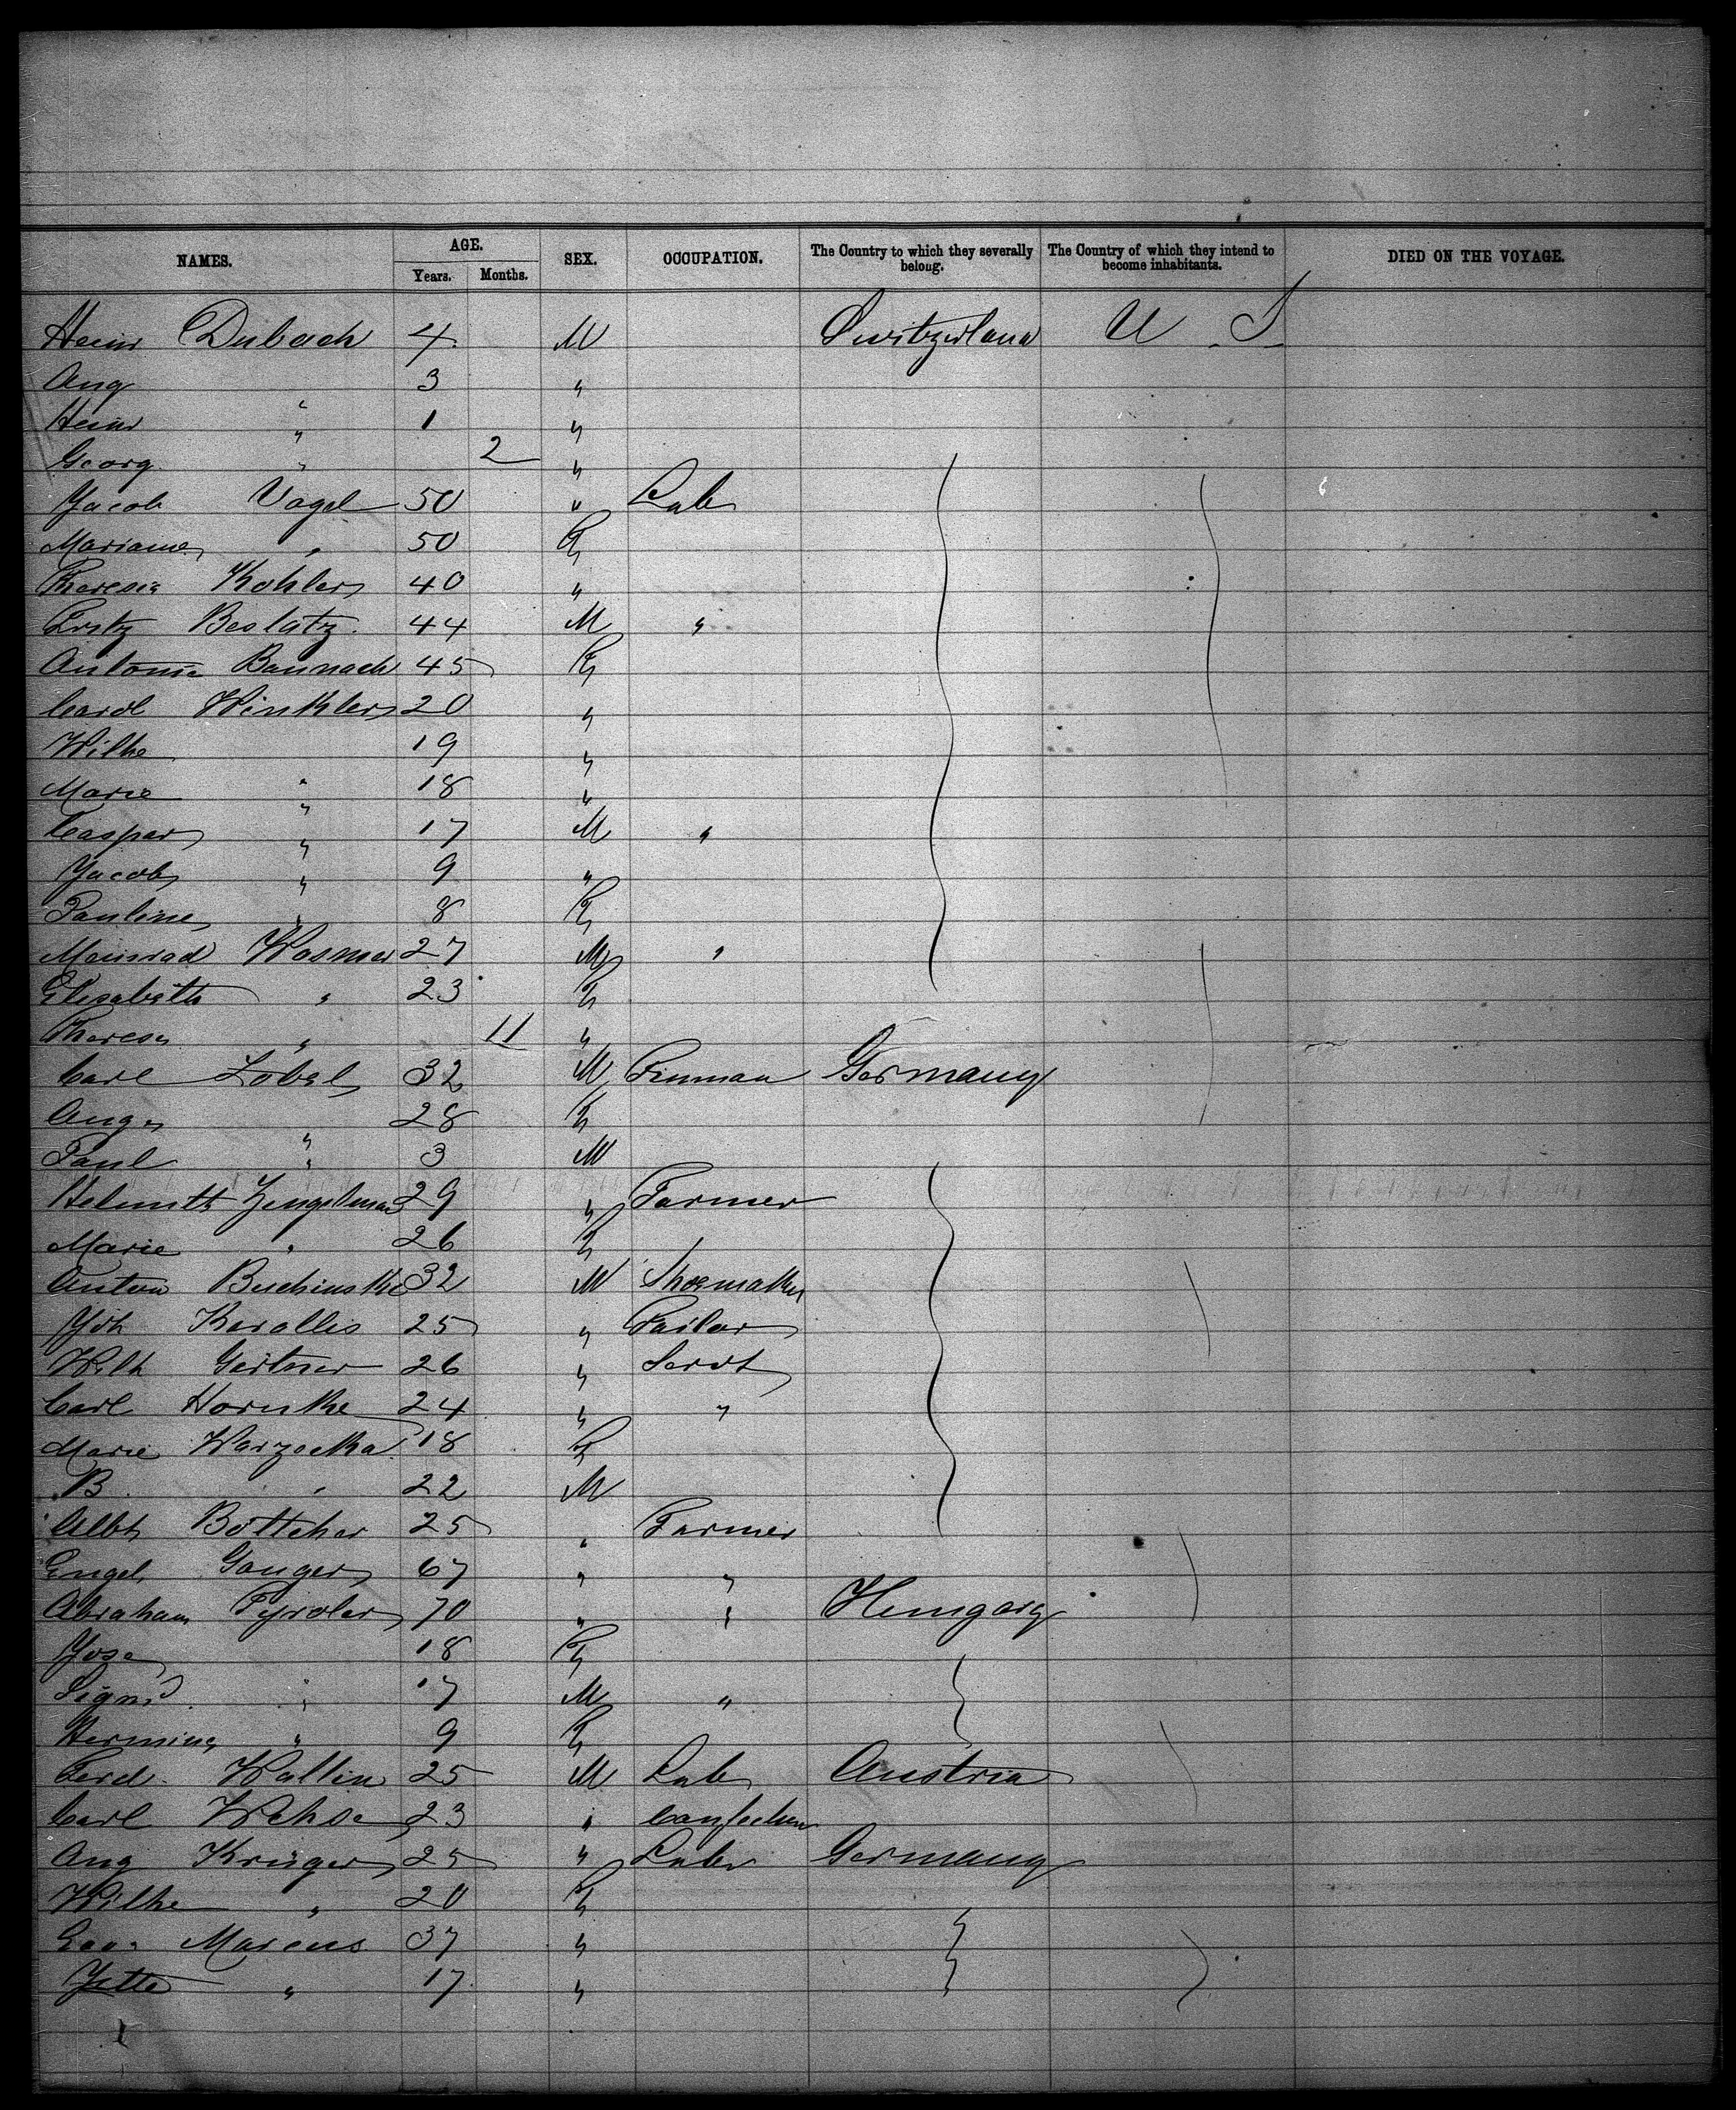 NAMES. AGE. SEX. OCCUPATION. The Country to which they severally belong. The Country of which they intend to become inhabitants. DIED ON THE VOYAGE.
Years. Months.
Heinr Dubach 4 M Switzerland U S
Aug " 3 "
Heinr " 1 "
Georg " 2 "
Jacob Vogel 50 " Lab
Mariane " 50 F
Theresia Kohler 40 "
Beslatz 44 M "
Antonia Bannach 45 F
Carol Winkler 20 "
Wilhe " 19 "
Marie " 18 "
Casper " 17 M "
Jacob " 9 "
Pauline " 8 F
Meinrad Wasmer 27 M "
Elisabeth " 23 F
Theresa " 11 "
Carl Löbel 32 M Germany
Aug " 28 F
Paul " 3 M
Helmuth 29 " Farmer
Marie " 26 F
Anton 32 M Shoemaker
Joh Karallis 25 " Tailor
Wilh Gertner 26 " Servt
Carl Hornke 24 " "
Marie Warzecka 18 F
B " 22 M
Albt Böttcher 25 " Farmer
Engel Ganger 67 " "
Abraham Tyroler 70 " " Hungary
Josa 18 F
" 17 M "
Hermina " 9 F
Ferd. Wallin 25 M Lab Austria
Carl Wehse 23 "
Aug Krüger 25 " Labr Germany
Wilhe " 20 F
Marcus 37 "
Jette " 17 "